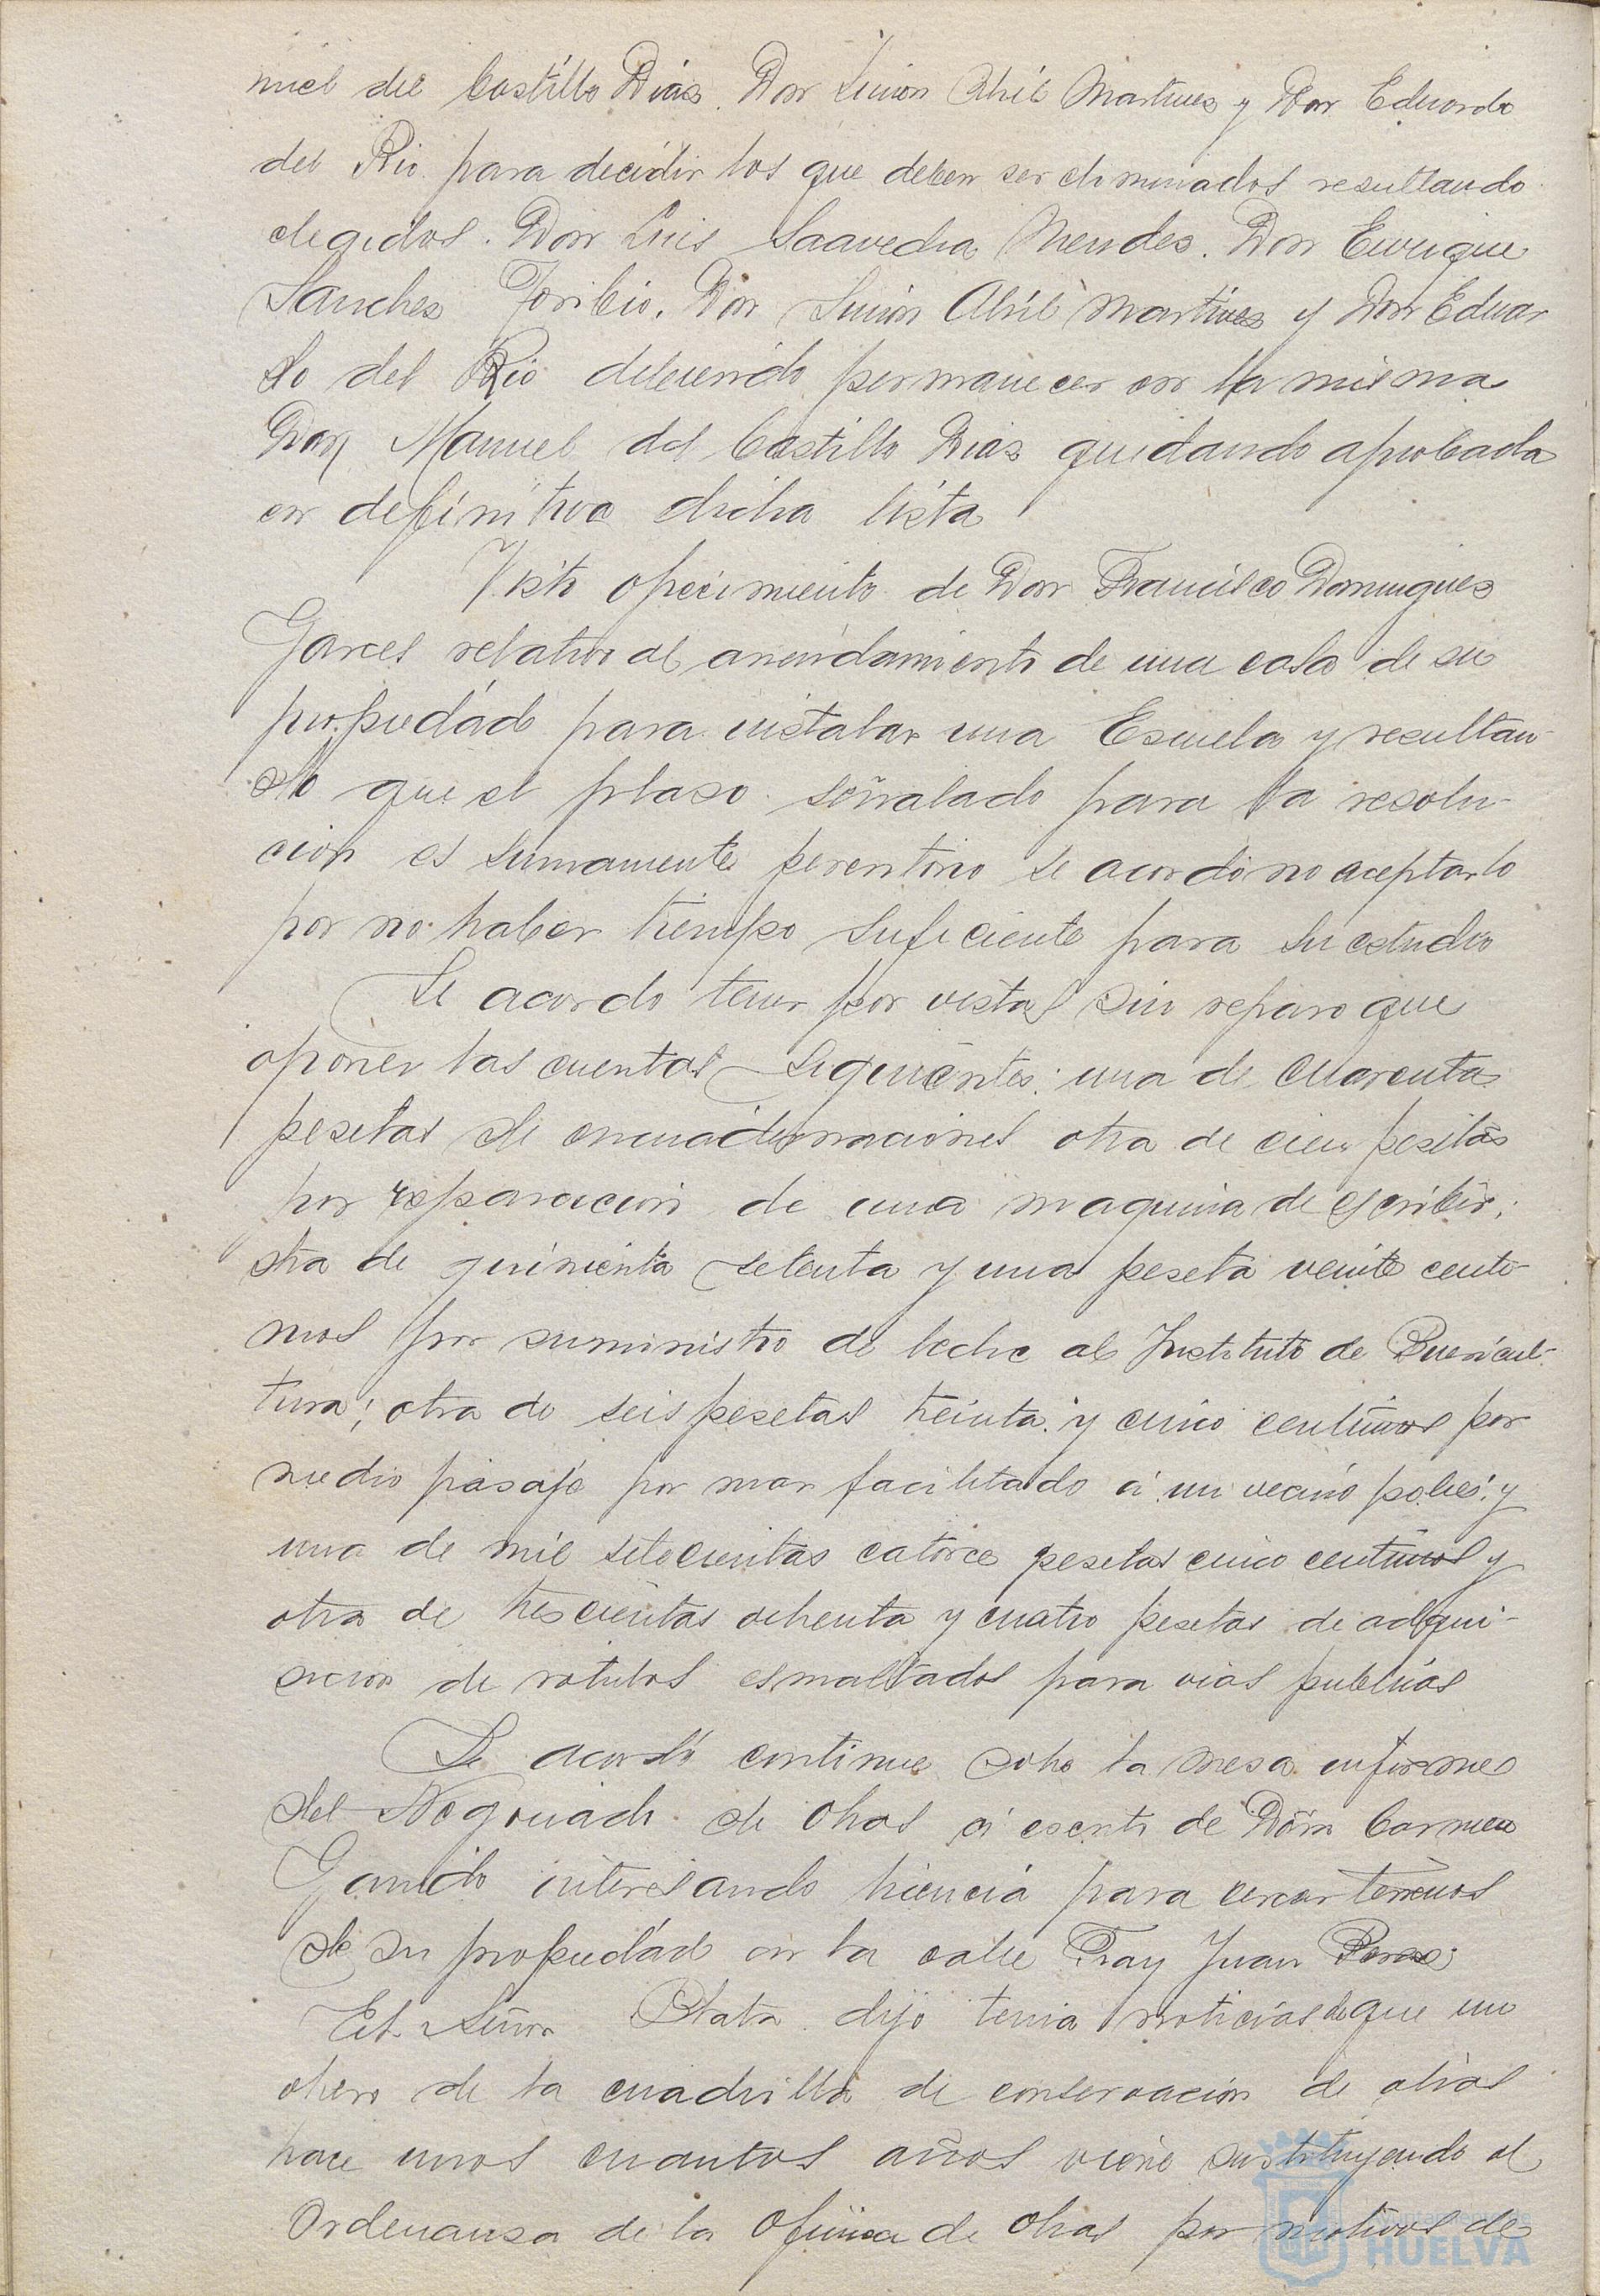 nuel del Castillo Dias. Don Simon Abril Martines y Don Eduardo
del Rio para decidir los que deben ser eliminados resultando
elegidos. Don Luis Saavedra Mendes. Don Enrique
Sanches Toribio. Don Simon Abril Martines y Don Eduar
do del Rio debiendo permanecer en la misma
Don Manuel del Castillo Dias quedando aprobada
en definitiva dicha lista
Visto ofrecimiento de Don Francisco Domingues
Garces relativo al arrendamiento de una casa de su
propiedad para instalar una Escuela y resultan-
do que el plaso señalado para la resolu-
cion es sumamente perentorio se acordó no aceptarlo
por no haber tiempo suficiente para su estudio
Se acordo tener por vistas sin reparo que
oponer las cuentas siguientes: una de cuarenta
pesetas de encuadernaciones otra de cien pesetas
por reparacion de una maquina de escribir;
otra de quinienta setenta y una peseta veinte centi-
mos por suministro de leche al Instituto de Puericul-
tura; otra de seis pesetas treinta y cinco centimos por
medio pasaje por mar facilitado á un vecino pobre; y
una de mil setecientas catorce pesetas cinco centimos y
otra de trescientas ochenta y cuatro pesetas de adqui-
sicion de rotulos esmaltados para vias publicas
Se acordó continue sobre la mesa informe
del Negociado de Obras á escrito de Doña Carmen
Garrido interesando licencia para cercar terrenos
de su propiedad en la calle Fray Juan Peres.
El Señor Plata dijo tenia noticias de que un
obrero de la cuadrilla de conservacion de obras
hace unos cuantos años viene sustituyendo al
Ordenansa de la Oficina de Obras por motivos de
Ayuntamiento de
HUELVA